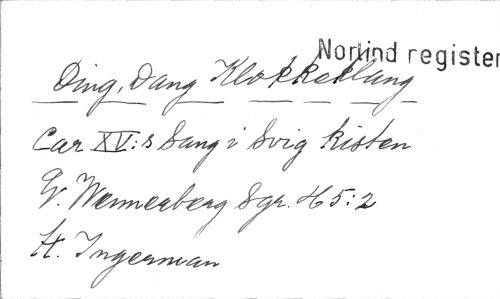 Norlind register
Ding, Dang Klokkeklang
Car XV:s Sang i Svig kisten
G. Wennerberg Sgr. H 5:2
H. Ingerman